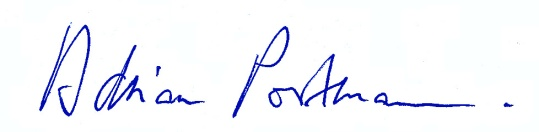 Adrian Portmann.